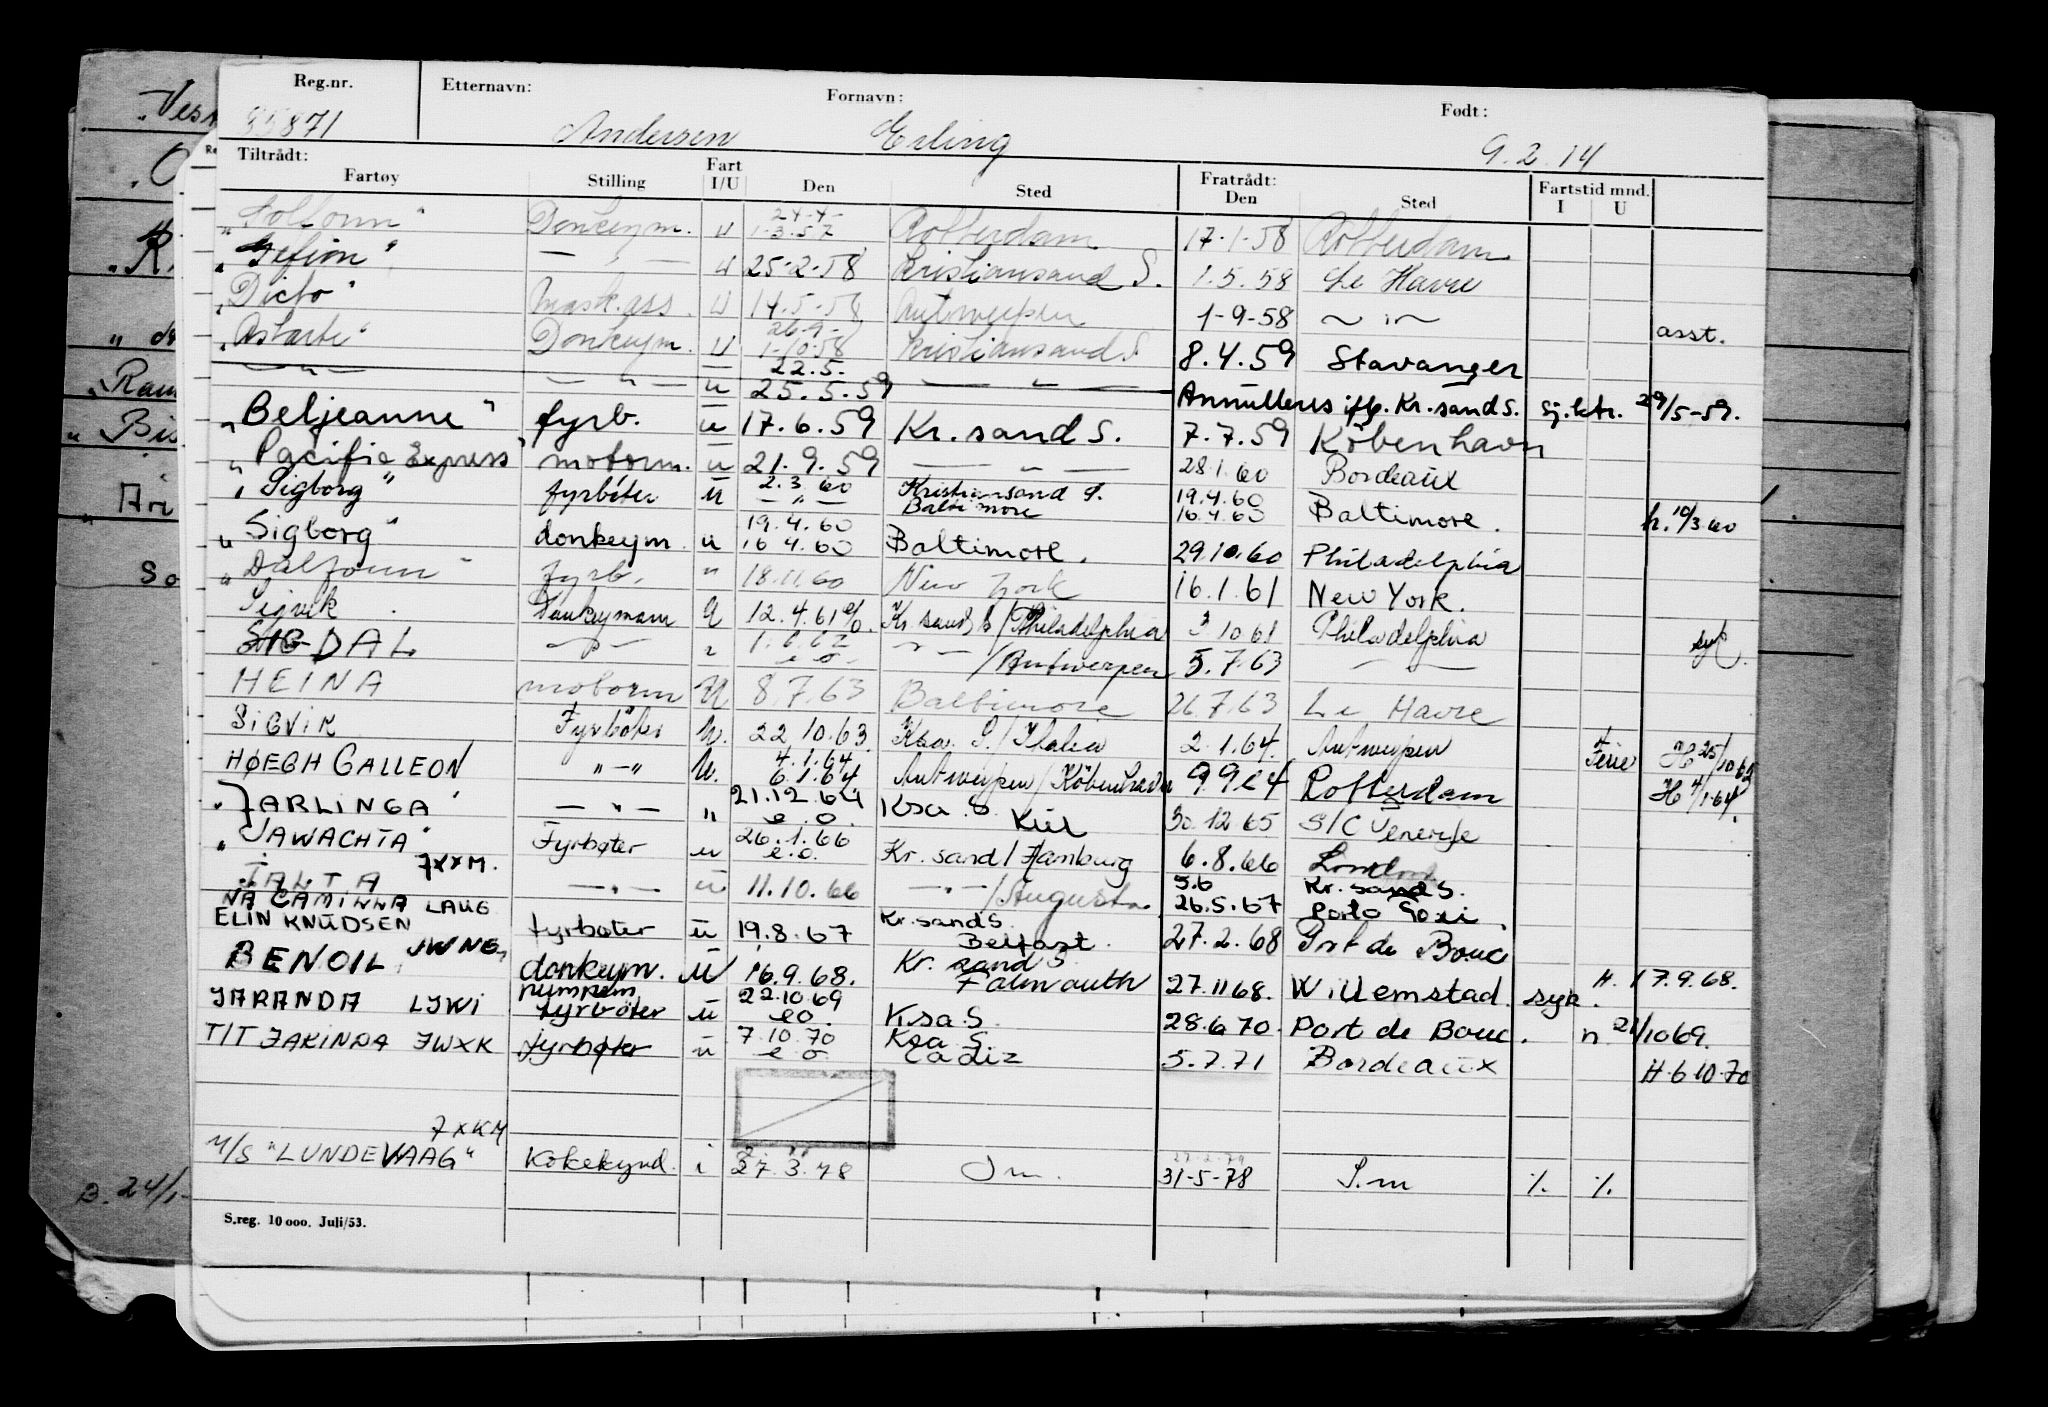 Reg.nr. Etternavn: Fornavn: Født:
871 Andersen Erling 9.2.14
Tiltrådt: Fart Fratrådt: Fartstid mnd.
Fartøy Stilling I/U Den Sted Den Sted I U
24-4-
Donkeym. u 1-3-57 Rotterdam 17-1-58 Rotterdam
„Gefion" — „ — u 25-2-58 Kristiansand S. 1.5.58 Le Havre
„Dicto" Mask.ass. u 14.5-58 Antwerpen 1-9-58 — „ — asst.
26-9-
„Astarte" Donkeym. u 1-10-58 Kristiansand S 8.4.59 Stavanger
22.5.
— „ — — „ — u 25.5.59 — „ — Annulleres iflg. Kr.sand S. sj.ktr. 29/5-59.
„Beljeanne" fyrb. u 17.6.59 Kr.sand S. 7.7.59 Köbenhavn
„Pacific Express" motorm. u 21.9.59 — „ — 28.1.60 Bordeaux
„Sigborg" fyrböter u 2.3.60 Kristiansand S. 19.4.60 Baltimore. h.10/3 60
— „ — Baltimore 16.4.60
19.4.60
„Sigborg" donkeym. u 16 4.60 Baltimore. 29.10.60 Philadelphia
„Dalfonn" fyrb. " 18.11.60 New York 16.1.61 New York.
Sigvik Donkeymann U 12.4.61 e/o. Kr.sand S/Philadelphia 3 10 61 Philadelphia syk.
SIGDAL — „ — „ 1.6.62 e o. — „ —/Antwerpen 5.7.63 — „ —
HEINA motorm U 8.7.63 Baltimore 26.7.63 Le Havre
SIGVIK Fyrböter U. 22 10.63 Ksa. S./Italia 2.1.64. Antwerpen Ferie H 25/10 63
4.1.64
HØEGH GALLEON " — " U. 6.1.64 Antwerpen/Köbenhavn 9 9 64 Rotterdam H 4/1-64.
21.12.64
„JARLINGA" — „ — " e o. Ksa. S. Kiel 30.12 65 S/C Tenerife
26.1.66
„JAWACHTA" Fyrbøter u e.o. Kr.sand/Hamburg 6.8.66 London
JXXM.
JALTA — „ — u 11.10.66 — „ —/Augusta 5.6 Kr.sand S.
NA CAMILLA LAUG 26.5.67
ELIN KNUDSEN fyrbøter u 19.8.67 Kr.sand S. Belfast. 27.2.68 Port de Bouc
BENOIL, JWNG, donkeym. U 16.9.68. Kr.sand S Falmouth 27.11 68. Willemstad. syk. H. 17.9.68.
pumpem 22.10 69
JARANDA LJWI fyrbøter u eo. Ksa.S. 28.6 70. Port de Bouc. n 21/10 69.
7.10.70 Ksa S.
T/T JAKINDA JWXK fyrbøter u e o Cadiz 5.7.71 Bordeaux H 6 10-70
JXKM
M/S "LUNDEVAAG" Kokekynd. i 27.3.78 Sm. 31-5-78 S.m ./. ./.
S.reg. 10 000. Juli/53.
B. 24/1-